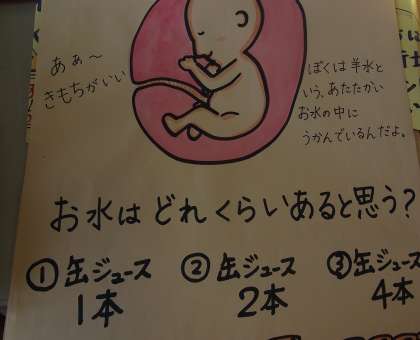 あぁ〜
きもちがいい
ぼくは羊水と
いう、あたたかい
お水の中に
うかんでいるんだよ。
お水は どれくらいあると思う?
① 缶ジュース
1本
② 缶ジュース
2本
③ 缶ジュース
4本